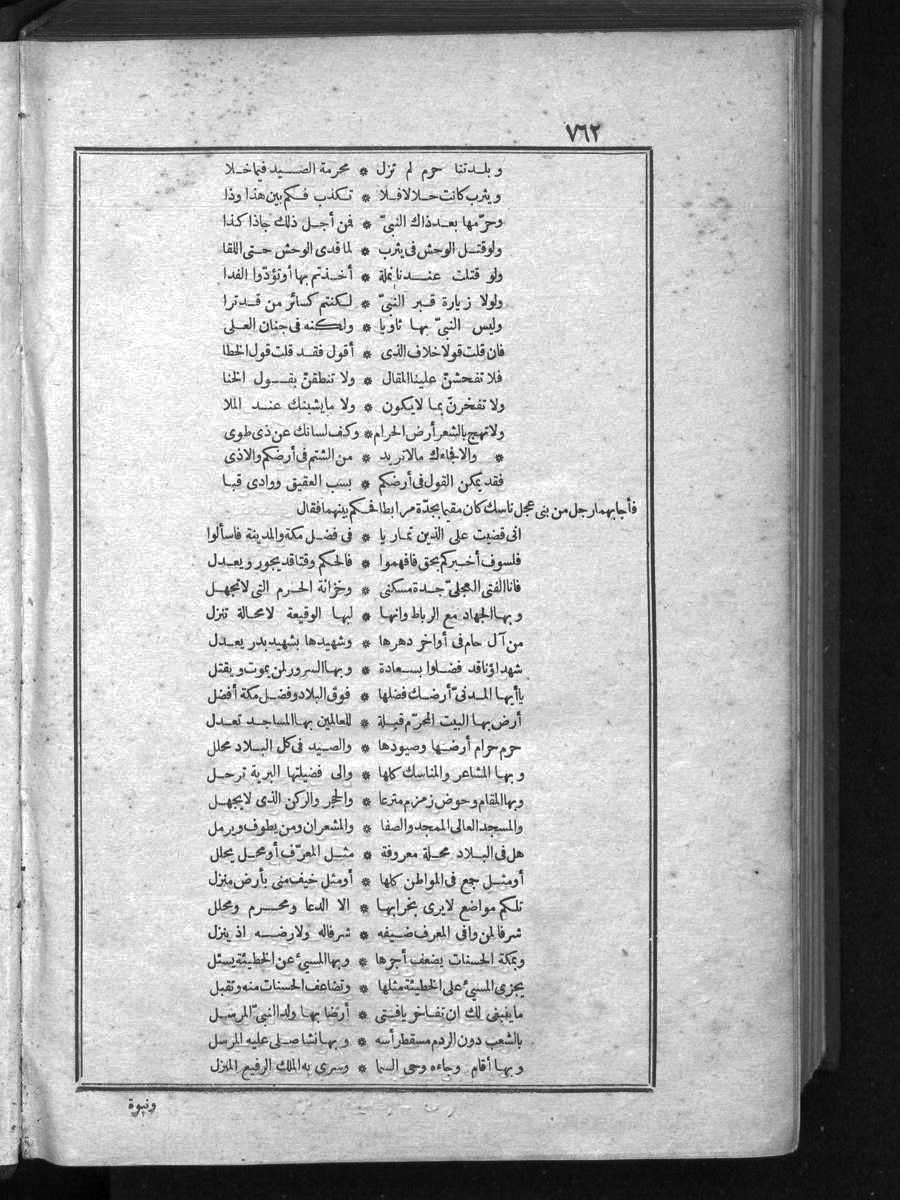 ٧٦٢
وبلدتنا حرم لم تزل * محرمة الصيد فيما خلا
ويثرب كانت حلالا فلا * تكذب فكم بين هذا وذا
وحرّمها بعد ذاك النبيّ * فمن أجل ذلك جاذا كذا
ولو قتل الوحش فى يثرب * لما فدى الوحش حتى اللقا
ولو قتلت عندنا نملة * أخذتم بها أو تؤدّوا الفدا
ولولا زيارة قبر النبيّ * لكنتم كسائر من قد ترا
وليس النبيّ بها ثاويا * ولكنه فى جنان العلى
فان قلت قولا خلاف الذى * أقول فقد قلت قول الخطا
فلا تفحشنّ علينا المقال * ولا تنطقنّ بقول الخنا
ولا تفخرنّ بما لا يكون * ولا ما يشبنك عند الملا
ولا تهج بالشعر أرض الحرام * وكف لسانك عن ذى طوى
* والا فجاءك مالا تريد * من الشتم فى أرضكم والاذى
فقد يمكن القول فى أرضكم * بسب العقيق ووادى قبا
فأجابهما رجل من بنى عجل ناسك كان مقيما بجدّة مرابطا فحكم بينهما فقال
انى قضيت على الذين تماريا * فى فضل مكة والمدينة فاسألوا
فلسوف أخبركم بحق فافهموا * فالحكم وقتا قد يجور ويعدل
فانا الفتى العجلىّ جدة مسكنى * وخزانة الحرم التى لا تجهل
وبها الجهاد مع الرباط وانها * لبها الوقيعة لا محالة تنزل
من آل حام فى أواخر دهرها * وشهيدها بشهيد بدر يعدل
شهداؤنا قد فضلوا بسعادة * وبها السرور لمن يموت ويقتل
يا أيها المدنىّ أرضك فضلها * فوق البلاد وفضل مكة أفضل
أرض بها البيت المحرّم قبلة * للعالمين بها المساجد تعدل
حرم حرام أرضها وصيودها * والصيد فى كل البلاد محلل
وبها المشاعر والمناسك كلها * والى فضيلتها البرية ترحل
وبها المقام وحوض زمزم مترعا * والحجر والركن الذى لا يجهل
والمسجد العالى الممجد والصفا * والمشعران ومن يطوف ويرمل
هل فى البلاد محلة معروفة * مثل المعرّف أو محل يحلل
أو مثل جمع فى المواطن كلها * أو مثل خيف منى بأرض منزل
تلكم مواضع لا يرى بخرابها * الا الدعا ومحرم ومحلل
شرفا لمن وافى المعرف ضيفه * شرفا له ولارضه اذ ينزل
وبمكة الحسنات يضعف أجرها * وبها المسىء عن الخطيئة يسئل
يجزى المسىء على الخطيئة مثلها * وتضاعف الحسنات منه وتقبل
ما ينبغى لك ان تفاخر يا فتى * أرضا بها ولد النبىّ المرسل
بالشعب دون الردم مسقط رأسه * وبها نشا صلى عليه المرسل
وبها أقام وجاءه وحى السما * وسرى به الملك الرفيع المنزل
ونبوة